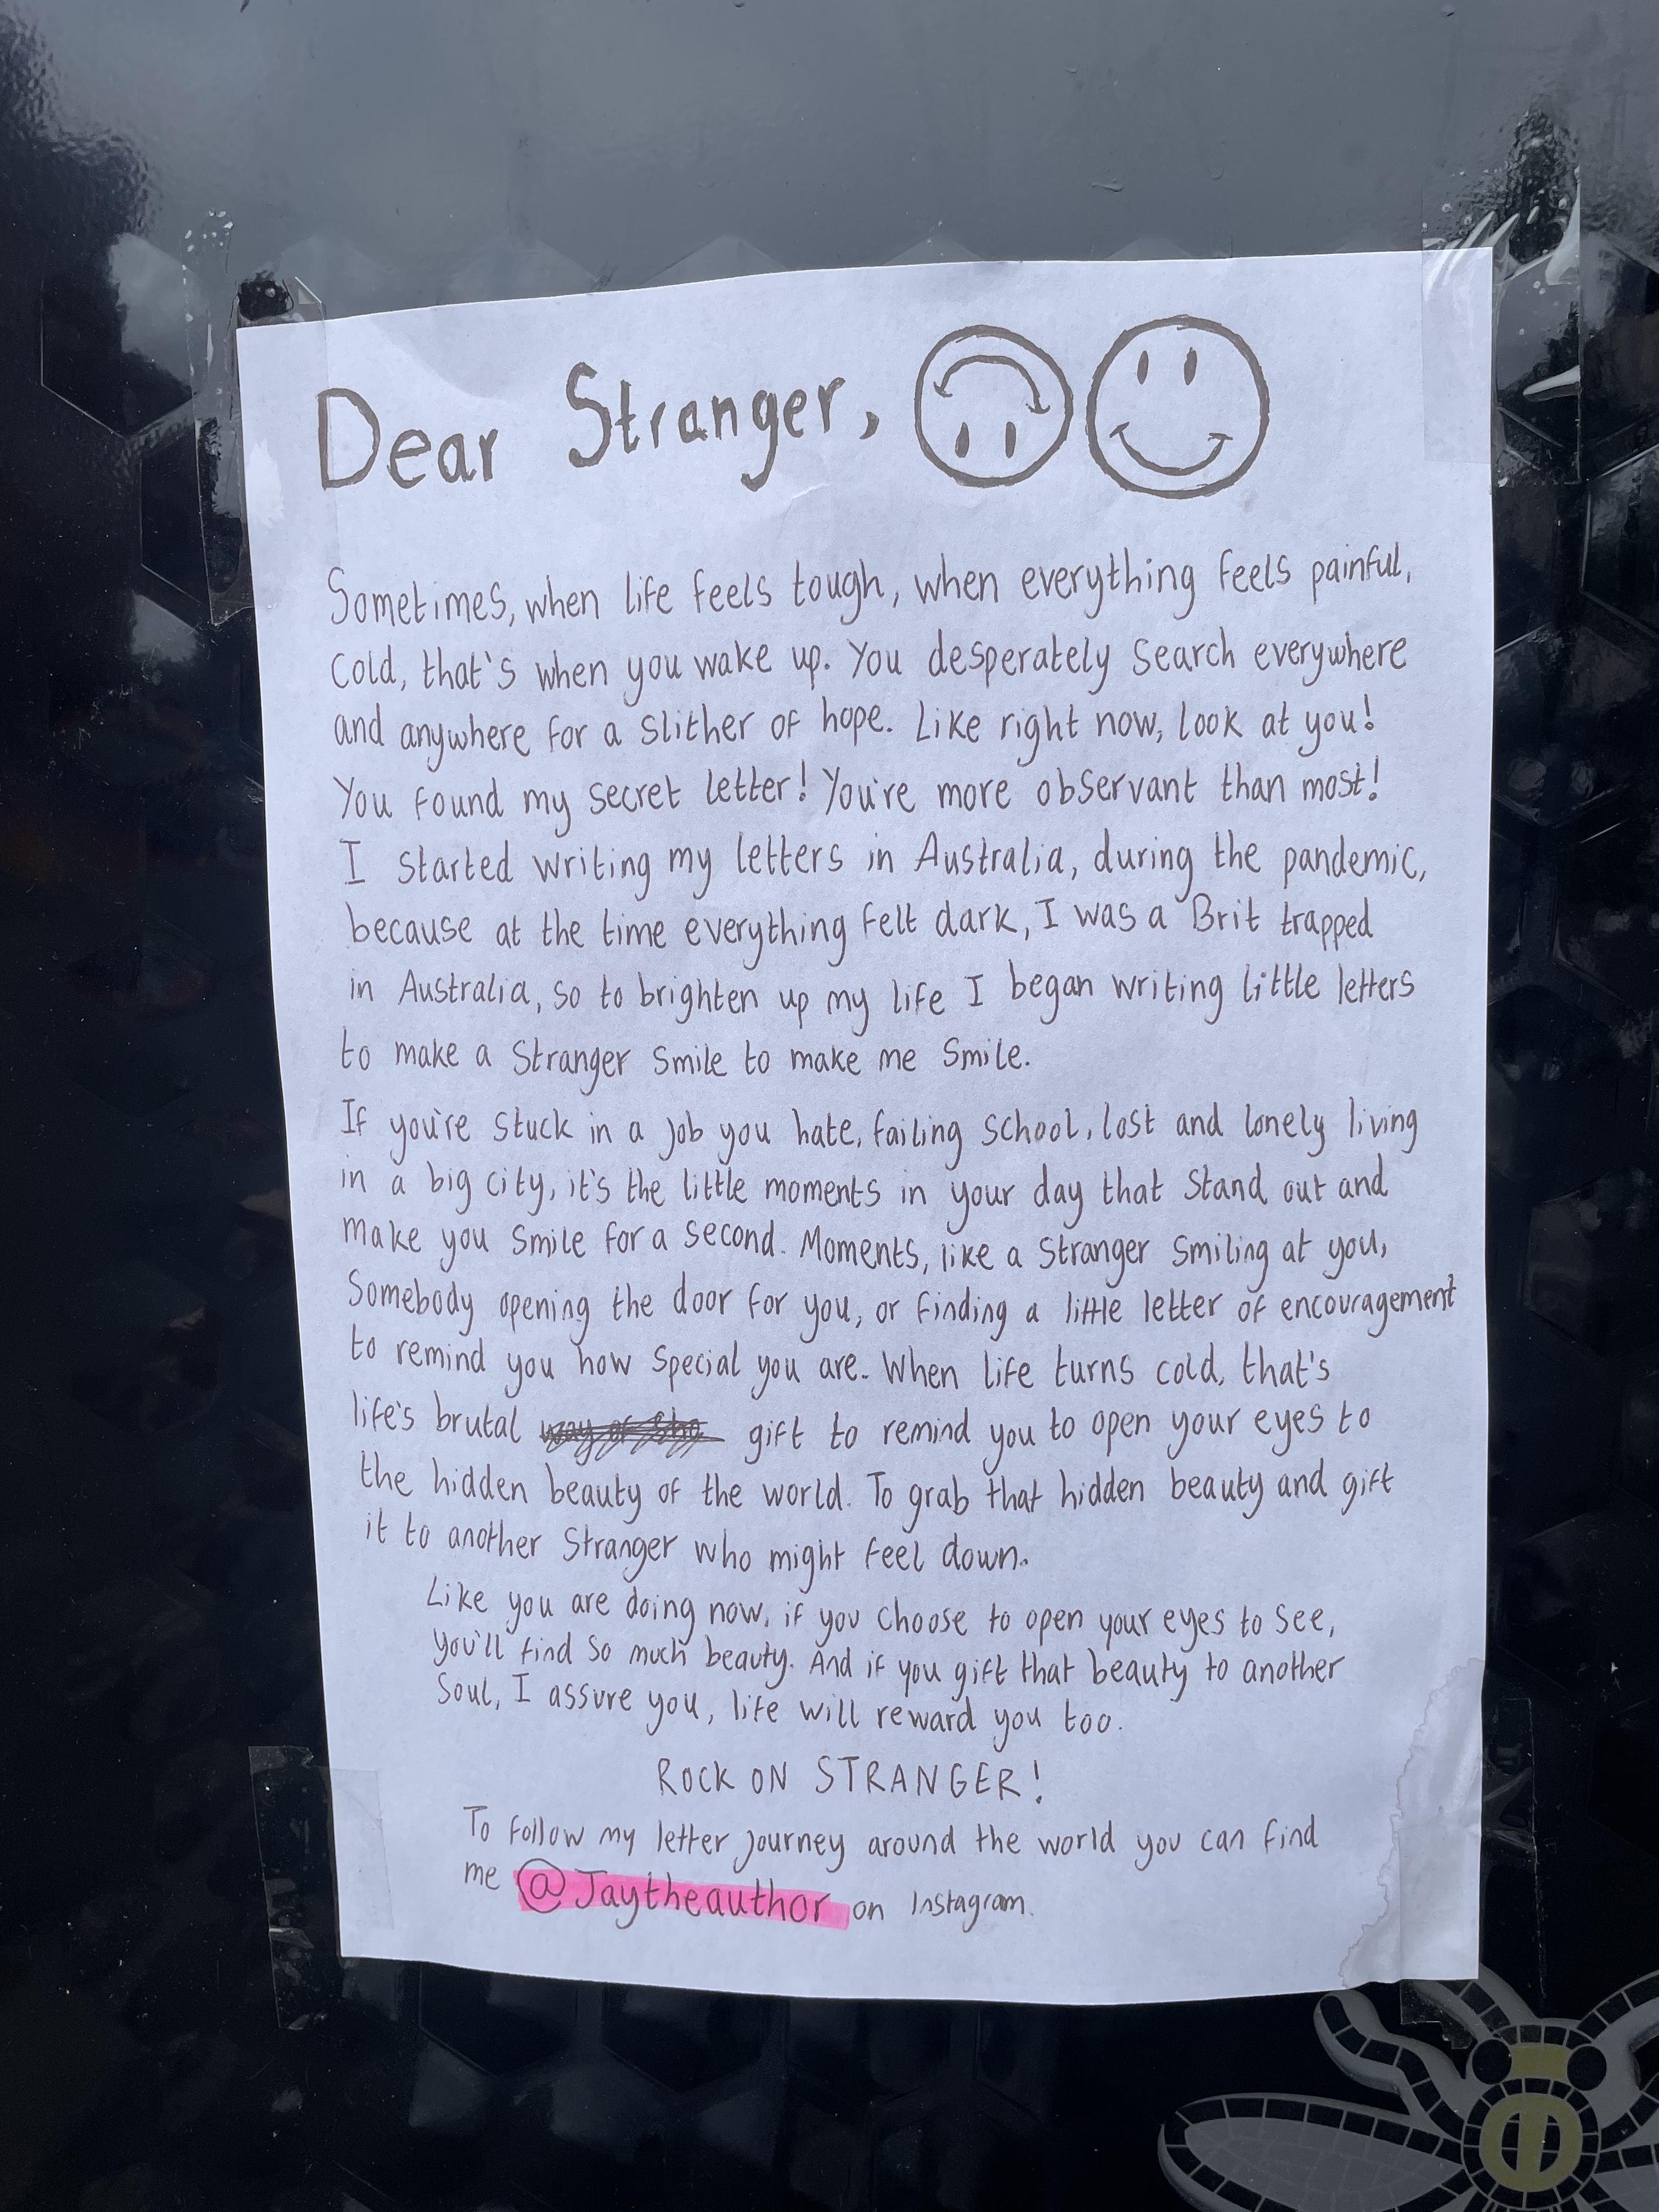 Dear Stranger,
Sometimes, when life feels tough, when everything feels painful,
cold, that's when you wake up. You desperately search everywhere
and anywhere for a slither of hope. Like right now, look at you!
You found my secret letter! You're more observant than most!
I started writing my letters in Australia, during the pandemic,
because at the time everything felt dark, I was a Brit trapped
in Australia, so to brighten up my life I began writing little letters
to make a stranger smile to make me smile.
If you're stuck in a job you hate, failing school, lost and lonely living
in a big city, it's the little moments in your day that stand out and
make you smile for a second. Moments, like a stranger smiling at you,
somebody opening the door for you, or finding a little letter of encouragement
to remind you how special you are. When life turns cold, that's
life's brutal way of sho gift to remind you to open your eyes to
the hidden beauty of the world. To grab that hidden beauty and gift
it to another stranger who might feel down.
Like you are doing now, if you choose to open your eyes to see,
you'll find so much beauty. And if you gift that beauty to another
soul, I assure you, life will reward you too.
ROCK ON STRANGER!
To follow my letter journey around the world you can find
me @Jaytheauthor on Instagram.